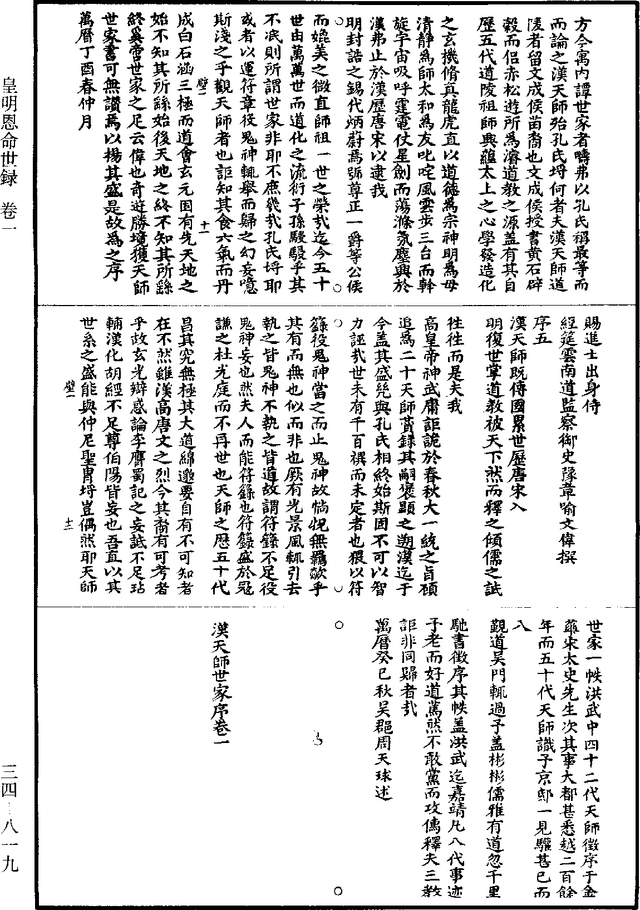 方今寓内譚世家者疇弗以孔氏稱最等而
而論之漢天師殆孔氏埒何者夫漢天師道
陵者留文成侯苗裔也文成侯授書黃石辟
穀而侶赤松遊所爲濬道教之源蓋有其自
歷五代道陵祖師興蘊太上之心學發造化
之玄機脩真龍虎直以道德爲宗神明爲母
清靜爲師太和爲友叱咤風雲步三台而斡
旋宇宙吸呼霆電仗星劍而蕩滌氛塵興於
漢弗止於漢歷唐宋以逮我
明封誥之錫代炳蔚焉號尊正一爵等公侯
而媲美之微直師祖一世之榮哉迄今五十
世由萬萬世而道化之流衍子孫駸駸乎其
不泯則所謂世家非耶不庶幾哉孔氏埒耶
或者以運符章役鬼神輒舉而歸之幻妄噫
斯淺之乎觀天師者也詎知其食六氣而丹
壁一 十一
成白石涵三極而道會玄元固有先天地之
始不知其所緜始後天地之終不知其所緜
終異啻世家之足云偉也奇遊勝境獲天師
世家書可無讚焉以揚其盛是故爲之序
萬曆丁酉春仲月
賜進士出身侍
經筵雲南道監察御史豫章喻文偉撰
序五
漢天師既傳國累世歷唐宋入
明復世掌道教被天下然而釋之傾儒之詆
往往而是夫我
高皇帝神武庸詎詭於春秋大一統之旨碩
追爲二十天師蕢錄其嗣褒顯之遡漢迄于
今蓋其盛㡬與孔氏相終始斯固不可以智
力誣哉世未有千百禩而未定者也猥以符
籙役鬼神當之而止鬼神故惝怳無羈歘乎
其有而無也似而非也厥有光景風軏引去
執之皆鬼神不執之皆道故謂符籙不足役
鬼神妄也然夫人而能符籙也符籙盛於冦
謙之杜光庭而不再世也天師之歷五十代
昌其究無極其大道綿邈要自有不可知者
在不然雖漢高唐文之烈今其裔有可考者
乎故玄光辯惑論李膺蜀記之妄詆不足玷
輔漢化胡經不足尊伯陽皆妄也吾直以其
世系之盛能與仲尼聖胄埒豈偶然耶天師
壁一 十二
世家一帙洪武中四十二代天師徵序于金
華宋太史先生次其事大都甚悉越二百餘
年而五十代天師識子京邸一見驩甚已而
入
覲道吴門輒過予蓋彬彬儒雅有道忽千里
馳書徵序其帙蓋洪武迄嘉靖凡八代事迹
子老而好道篤然不敢黨而攻儒釋夫三教
詎非同歸者哉
萬曆癸巳秋吴郡周天球述
漢天師世家序卷一
皇明恩命世録 卷一
三四—八一九